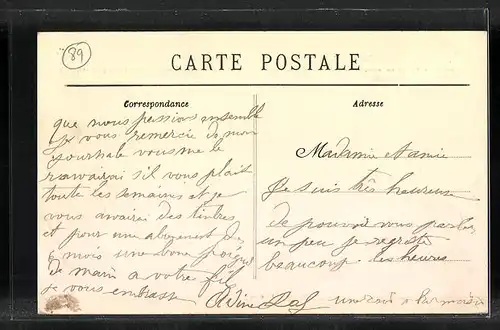 89
CARTE POSTALE
Correspondance
Adresse
que nous passions ensemble
je vous remercie de mon
journale vous me le
ranvairai sil vous plait
toute les semaines et je
vous anvairai des tinbres
et pour une abonement de
6 mois une bone poigné
de main a votre fils
je vous embrasse
Madamme et amie
Je suis très heureuse
de pouvoir vous parler
un peu je regrete
beaucoup les heures